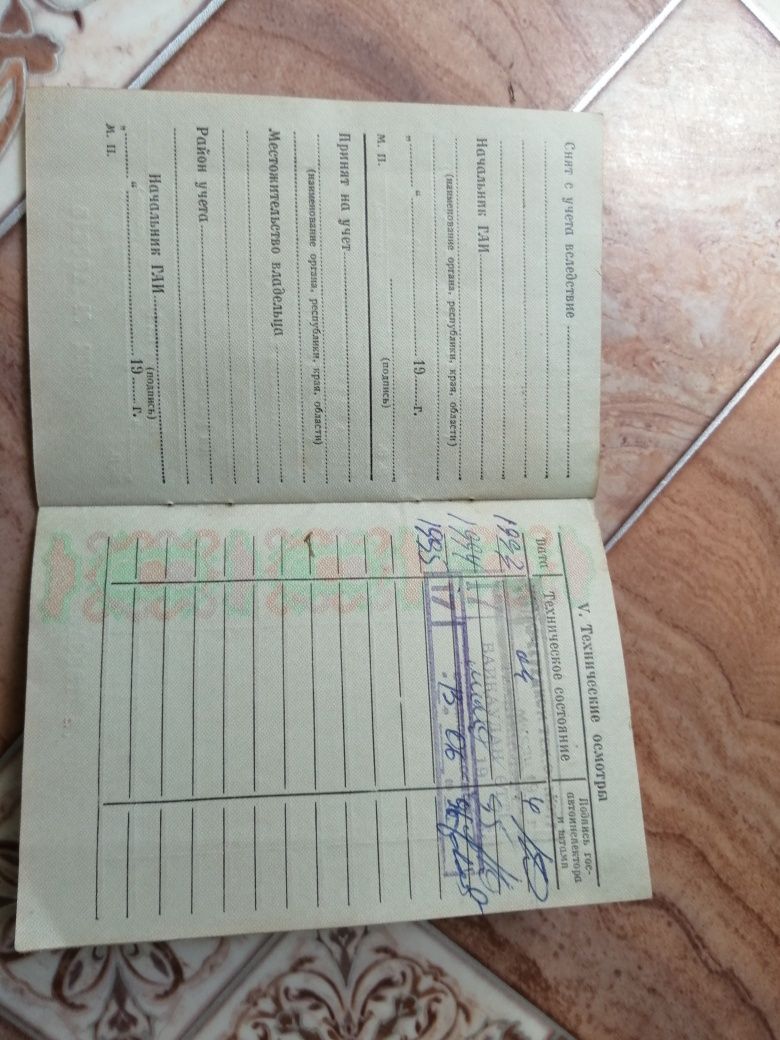 Снят с учета вследствие
Начальник ГАИ
(наименование органа, республики, края, области)
„ “ 19 г.
М. П. (подпись)
Принят на учет
(наименование органа, республики, края, области)
Местожительство владельца
Район учета
Начальник ГАИ
(подпись)
„ “ 19 г.
М. П.
V. Технические осмотры
Дата
Техническое состояние
Подпись гос-
автоинспектора
и штамп
1992
1994
1995
17